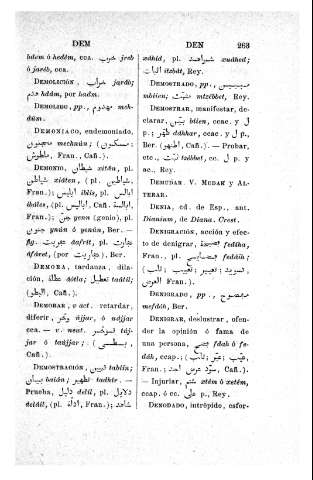 DEM
DEN 263
hdem ó hedém, cca. خرب jrab
ó jaráb, cca.
DEMOLICIÓN, خراب jaráb;
هدم hdám, por hadm.
DEMOLIDO, pp., مهدوم meh-
dúm.
DEMONÍACO, endemoniado,
مجنون mechnún; (مسكون;
Fran., Cañ.).
DEMONIO, شيطان xitán, pl.
شياطن xiáten, (pl. شياطين,
Fran.); ابليس iblis, pl. ابالس
ibáles, (pl. ابالیس, Cañ., ابالسة,
Fran.); جن yenn (genio), pl.
جنون ynún ó yenún, Ber. —
fig. عفريت aafrit, pl.
áfáret, (por عفاريت), Ber.
DEMORA, tardanza, dila-
ción, عطلة áótla; تعطيل taátíl;
Cañ.).
DEMORAR, v. act. retardar,
diferir, وخر ájjar, ó ádjjar
cca. — v. neut. توخر táj-
jar ó taájjar; (
Cañ.).
DEMOSTRACIÓN, تبيين tabíín;
بيان baián; تظهير tadhir. —
Prueba, دليل delíl, pl. دلايل
deláil, (pl. ادلة, Fran.); شاهد
xáhid, pl. شواهد xuáhed;
اثبات itzbát, Rey.
DEMOSTRADO, pp.,
mbéien; مثبت mtzébbet, Rey.
DEMOSTRAR, manifestar, de-
clarar, بين béien, ccac. y ل p.,
ظهر dáhhar, ccac. y ل
p.; (اظهر, Cañ.). — Probar,
etc., ثبت tzébbet, cc. ل p. y
ac., Rey.
DEMUDAR. V. MUDAR y AL-
TERAR.
DENIA, cd. de Esp., ant.
Dianiam, de Diana. Crest.
DENIGRACIÓN, acción y efec-
to de denigrar, فضيحة fediha,
pl. فضايح fedáih, Fran.;
(تسويد; تعيير; تعييب; ثلب;
Fran.).
DENIGRADO, pp., مفضوح
mefdóh, Ber.
DENIGRAR, deslustrar, ofen-
der la opinión ó fama de
una persona, فضح fdah ó fe-
dáh, ccap.; (عيب; عير; ثلب,
Fran.; سود عرض احد, Cañ.).
— Injuriar, شتم xtém ó xetém,
ccap. ó cc. على p., Rey.
DENODADO, intrépido, esfor-